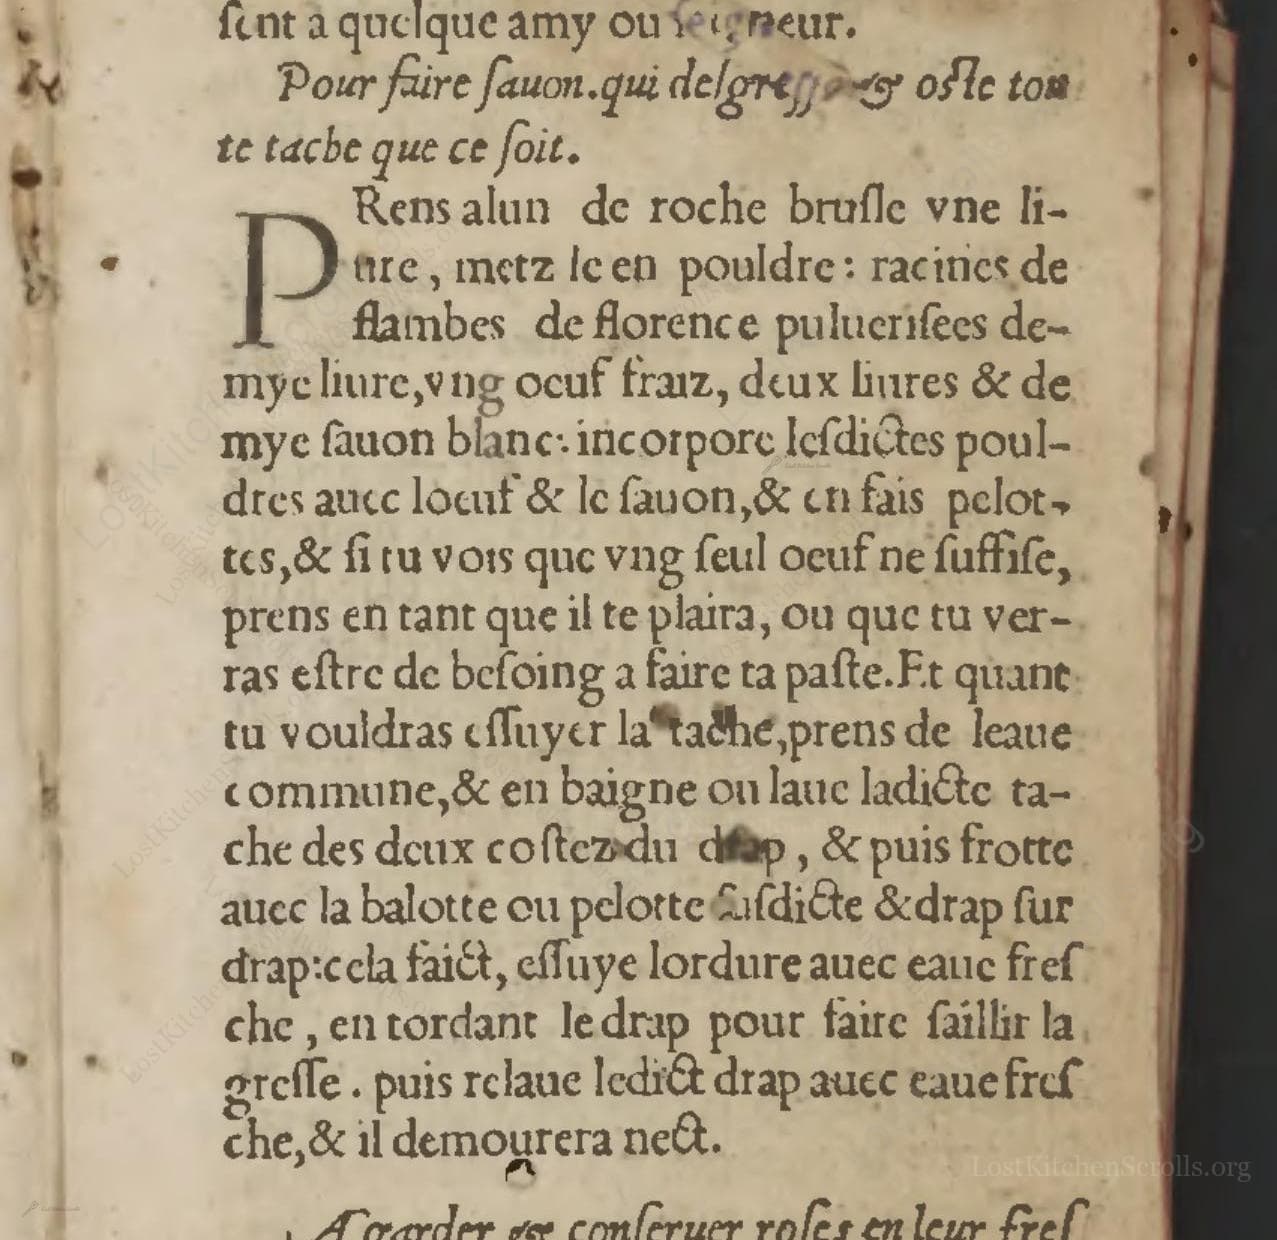 sent a quelque amy ou seigneur.
Pour faire sauon.qui desgresse & oste tou
te tache que ce soit.
PRens alun de roche brusle vne li-
ure, metz le en pouldre: racines de
flambes de florence puluerisees de-
mye liure,vng oeuf fraiz, deux liures & de
mye sauon blanc: incorpore lesdictes poul-
dres auec loeuf & le sauon,& en fais pelot-
tes,& si tu vois que vng seul oeuf ne suffise,
prens en tant que il te plaira, ou que tu ver-
ras estre de besoing a faire ta paste.Et quant
tu vouldras essuyer la tache,prens de leaue
commune,& en baigne ou laue ladicte ta-
che des deux costez du drap, & puis frotte
auec la balotte ou pelotte susdicte &drap sur
drap:cela faict, essuye lordure auec eaue fres
che, en tordant le drap pour faire saillir la
gresse. puis relaue ledict drap auec eaue fres
che,& il demourera nect.
A garder & conseruer roses en leur fres
LostKitchenScrolls.org